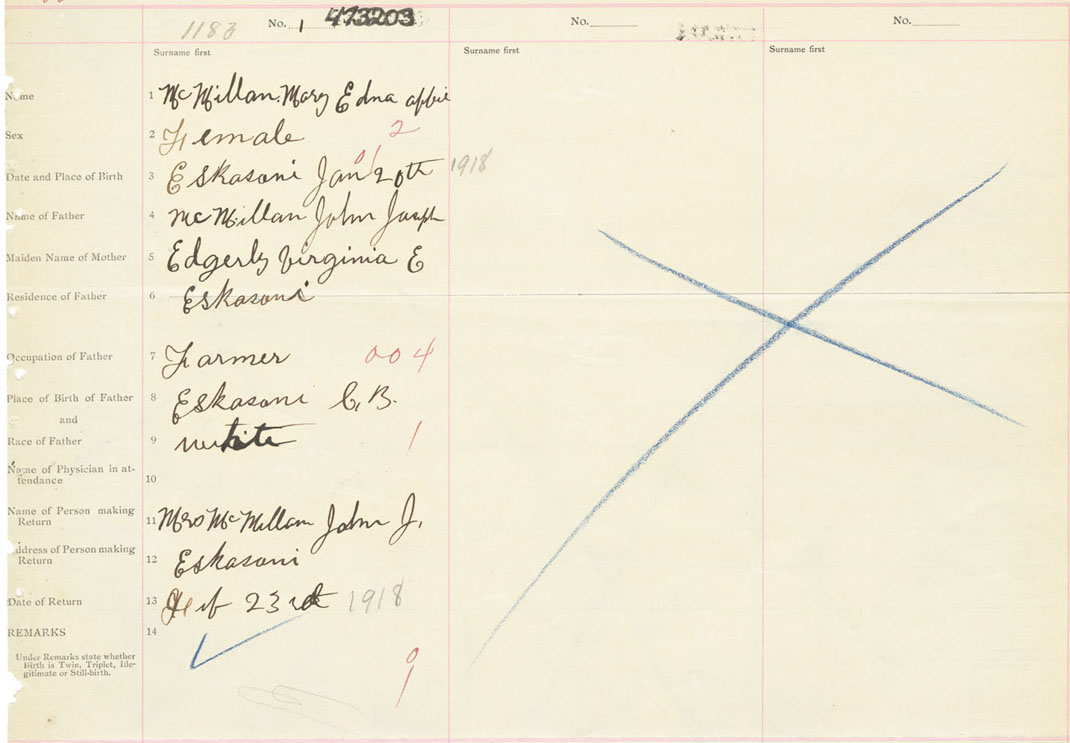 1183 No. 1 473203 No. No.
Surname first Surname first Surname first
Name 1 McMillan Mary Edna
Sex 2 Female 2
Date and Place of Birth 3 Eskasoni Jan 20th 1918
01
Name of Father 4 McMillan John Joseph
Maiden Name of Mother 5 Edgerly Virginia E
Residence of Father 6 Eskasoni
Occupation of Father 7 Farmer 004
Place of Birth of Father 8 Eskasoni C.B.
and
Race of Father 9 white 1
Name of Physician in at-
tendance 10
Name of Person making
Return 11 Mrs McMillan John J.
Address of Person making
Return 12 Eskasoni
Date of Return 13 Feb 23rd 1918
REMARKS 14
Under Remarks state whether
Birth is Twin, Triplet, Ille-
gitimate or Still-birth.
0
1